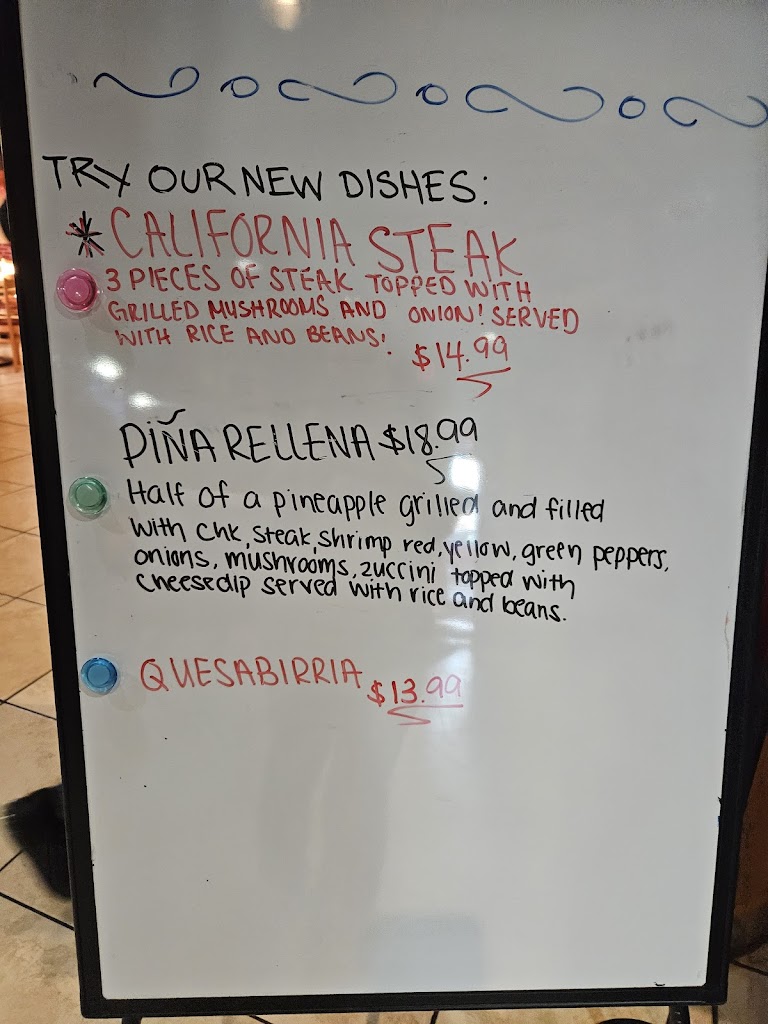 TRY OUR NEW DISHES:
* CALIFORNIA STEAK
3 PIECES OF STEAK TOPPED WITH
GRILLED MUSHROOMS AND ONION! SERVED
WITH RICE AND BEANS!
$14.99
PIÑA RELLENA $18.99
Half of a pineapple grilled and filled
with chk, steak, shrimp red, yellow, green peppers,
onions, mushrooms, zuccini topped with
cheesedip served with rice and beans.
QUESABIRRIA $13.99